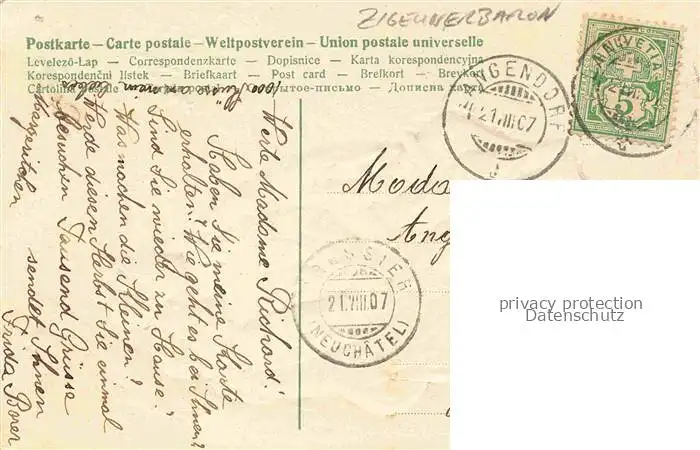 ZIGEUNERBARON
Postkarte – Carte postale – Weltpostverein – Union postale universelle
Levelező-Lap — Correspondenzkarte — Dopisnice — Karta korespondencyjna
Korespondenční lístek — Briefkaart — Post card — Brefkort — Brevkort
Cartolina — Дописна
HELVETIA
5
21.VIII.07
Werte Madame Richard!
Haben Sie meine Karte
erhalten? Wie geht es bei Ihnen?
Sind Sie wieder zu Hause?
Was machen die Kleinen?
Werde diesen Herbst Sie einmal
besuchen Tausend Grüsse
sendet Ihnen
Frida Borer
1000 Küsse an mein
21.VIII.07
(NEUCHÂTEL)
privacy protection
Datenschutz